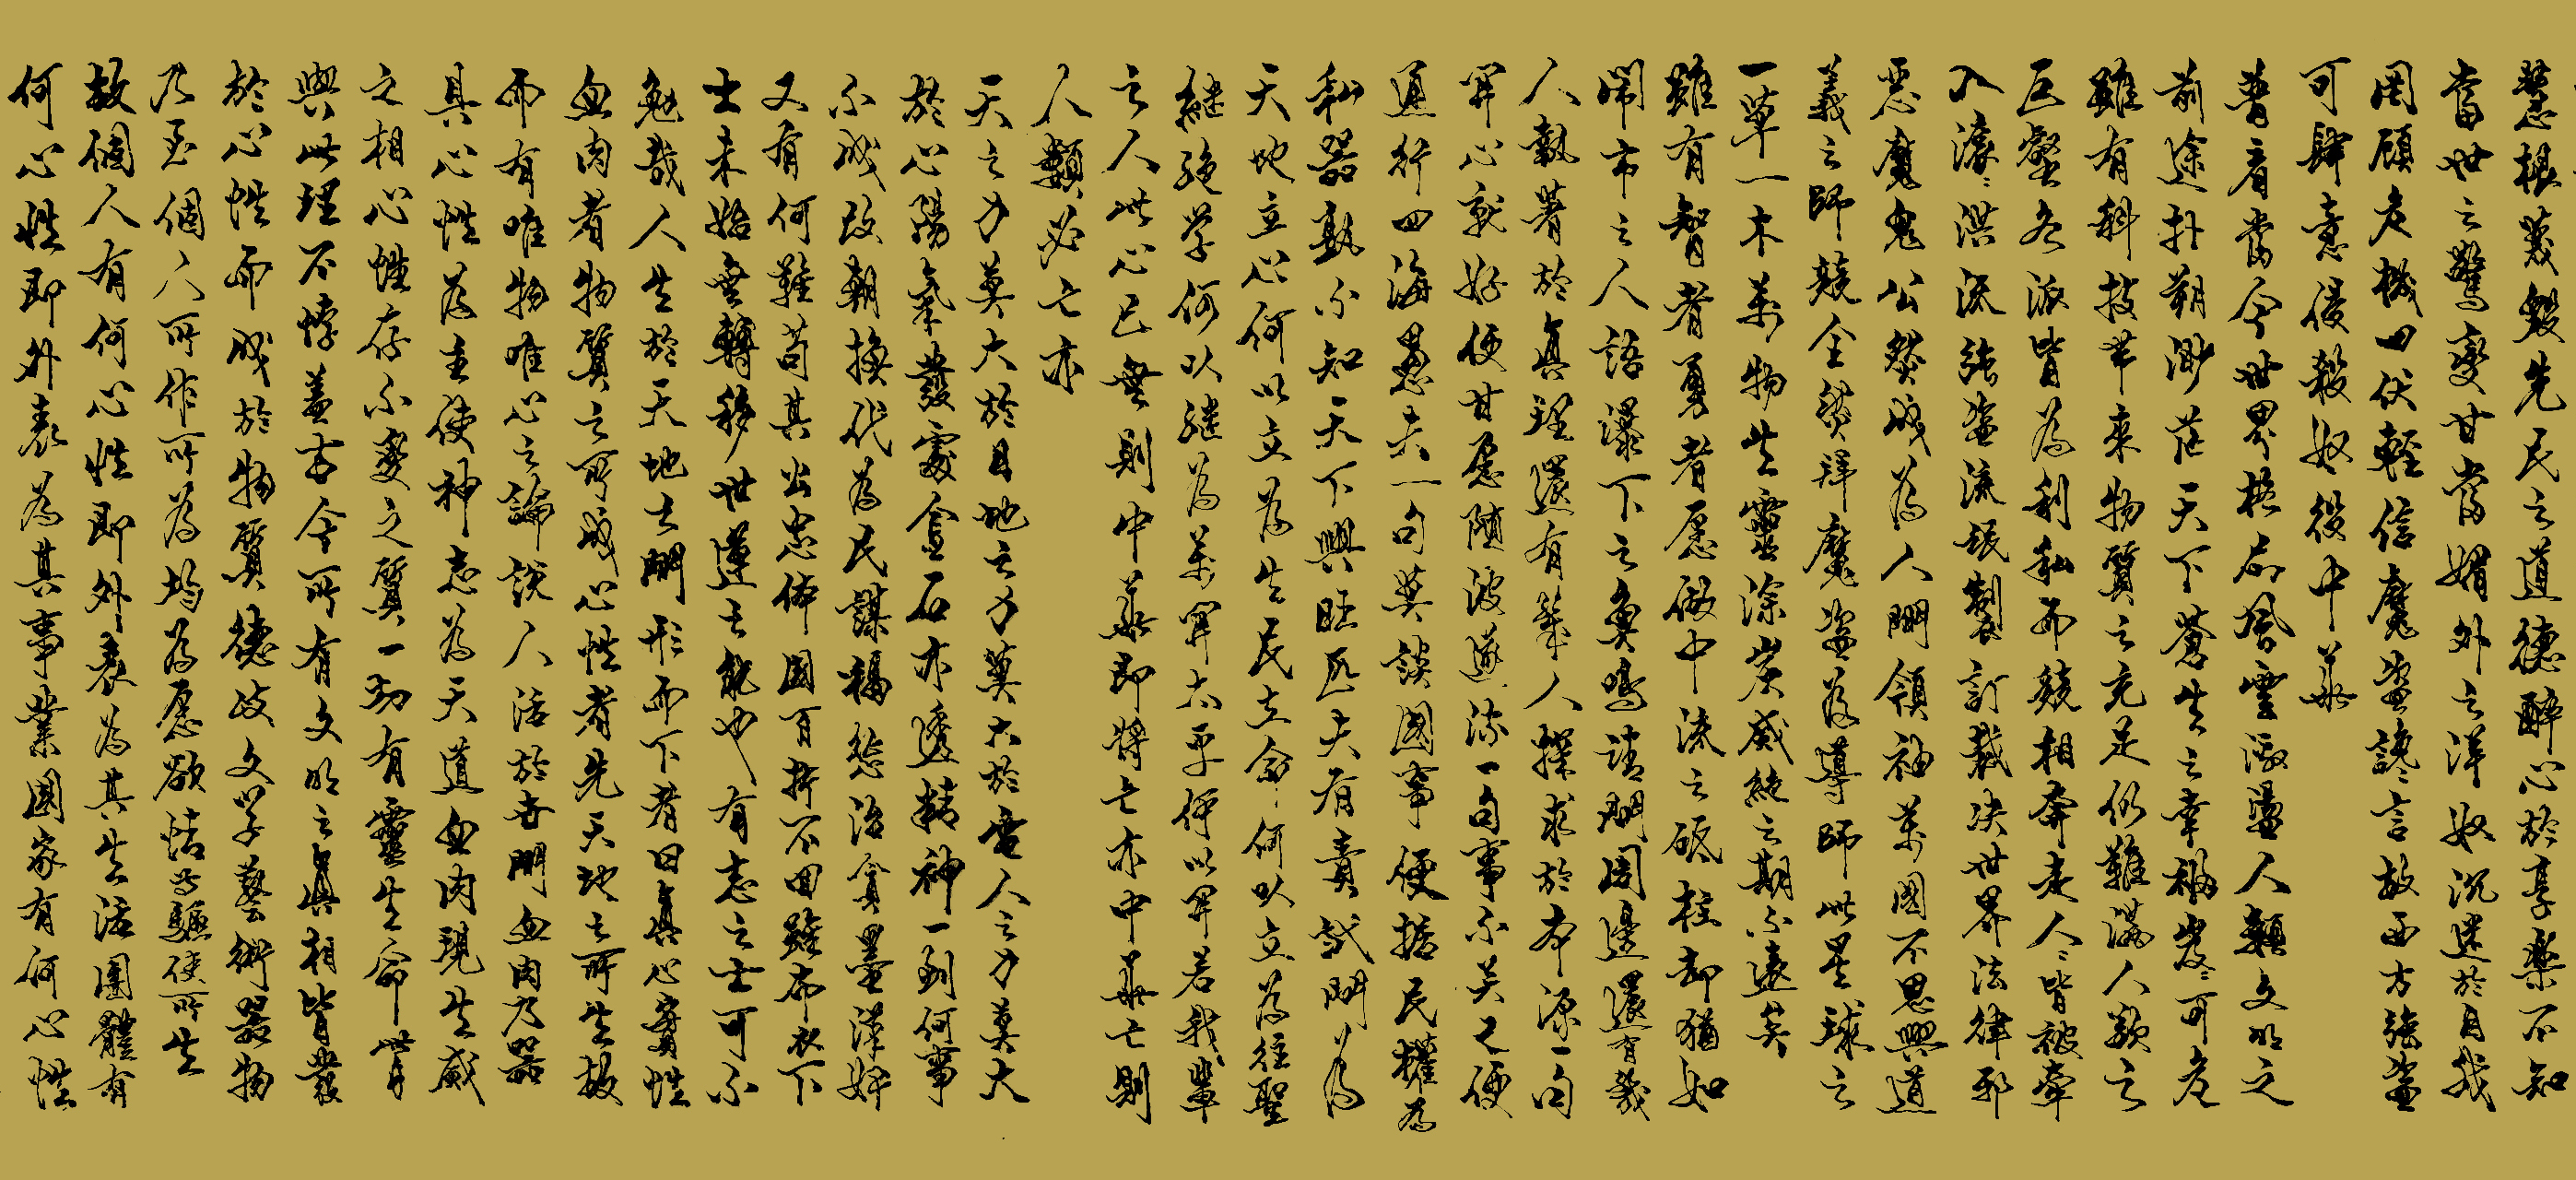 慧根幾毀先民之道德醉心於享樂不知
當世之驚變甘當媚外之洋奴沉迷於自我
罔顧危機四伏輕信魔盜讒言故西方強盜
可肆意侵殺奴役中華
普看當今世界格局風雲激盪人類文明之
前途撲朔渺茫天下蒼生之幸福岌岌可危
雖有科技帶來物質之充足仍難滿人欲之
巨壑各派皆為利私而競相奔走人人皆被牽
入滾滾洪流強盜流氓製訂裁決世界法律邪
惡魔鬼公然成為人間領袖萬國不思興道
義之師競全然拜魔盜為導師此星球之
一草一木萬物生靈塗炭威絕之期不遠矣
雖有智者勇者愿做中流之砥柱卻猶如
鬧市之人語瀑下之魚鳴請問周邊還有幾
人執著於真理還有幾人探求於本源一句
開心就好便甘愿隨波逐流一句事不關己便
通行四海愚夫一句莫談國事便搖民權為
私器孰不知天下興旺匹夫有責試問為
天地立心何以立為生民立命何以立為往聖
繼絕學何以繼為萬開太平何以開若我輩
之人此心已無則中華即將亡亦中華亡則
人類必亡亦
天之力莫大於日地之力莫大於電人之力莫大
於心陽氣發處金石亦透精神一到何事
不成改朝換代為民謀福懲治貪墨漢奸
又有何難苟其出忠俸國百折不回雖布衣下
士未始無轉移世運之能也有志之士可不
勉哉人生於天地之間形而下者曰真心實性
血肉者物質之所成心性者先天地之所生故
而有唯物唯心之論說人活於世間血肉乃器
具心性為主使神志為天道血肉現生滅
之相心性存不變之質一切有靈生命皆
與此理不悖蓋古今所有文明之真相皆發
於心性而成於物質德政文學藝術器物
乃至個人所作所為均為愿欲情等驅使所生
故個人有何心性即外表為其生活團體有
何心性即外表為其事業國家有何心性